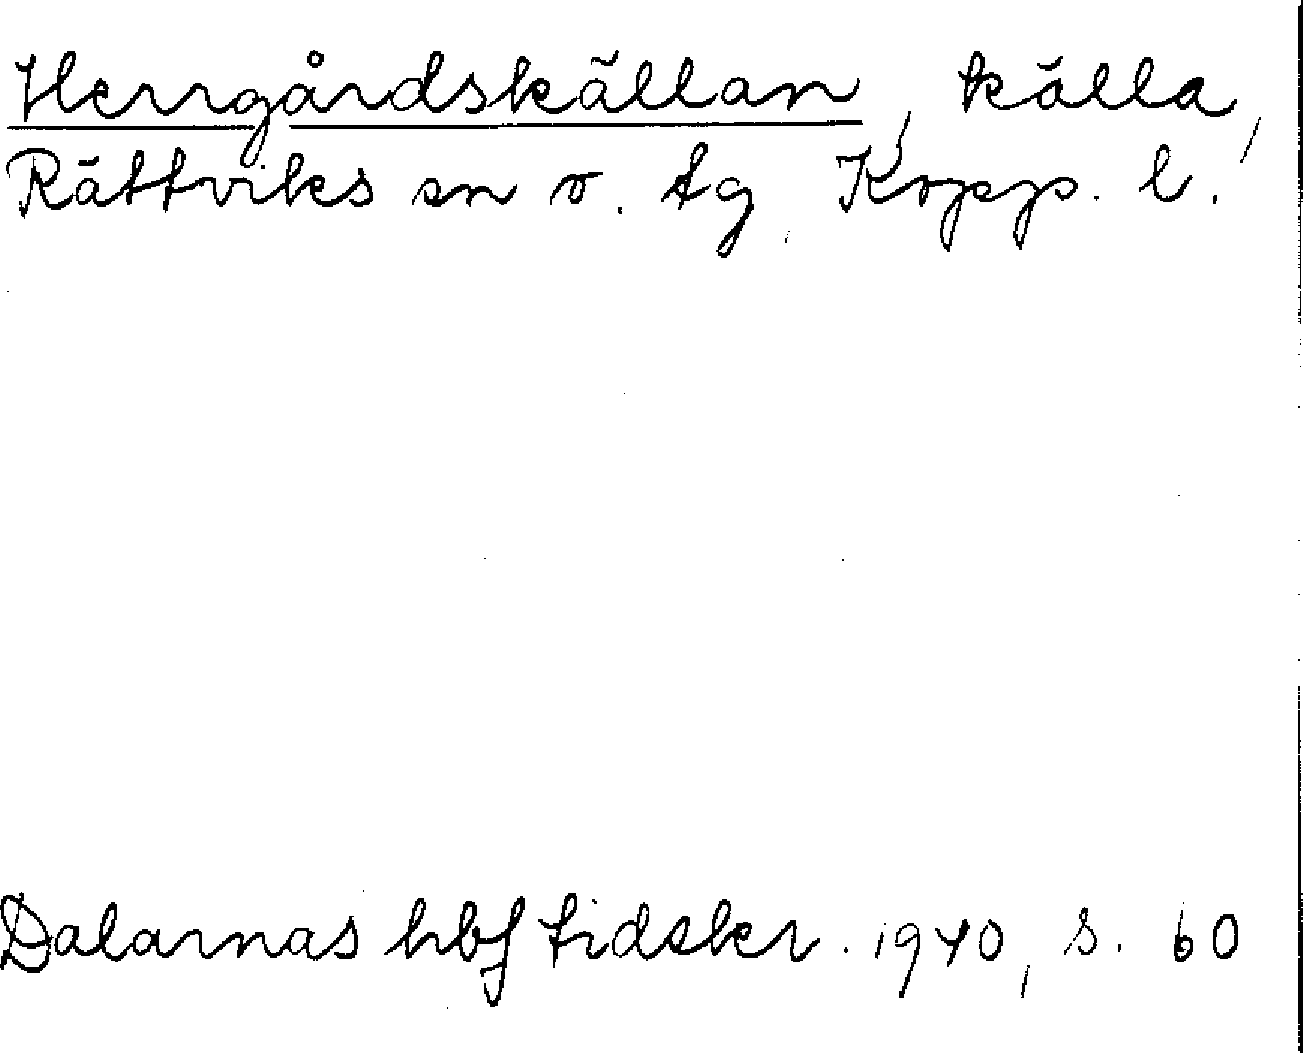 Herrgårdskällan, källa,
Rättviks sn o. tg, Kopp. l.
Dalarnas hbf tidskr. 1940, s. 60